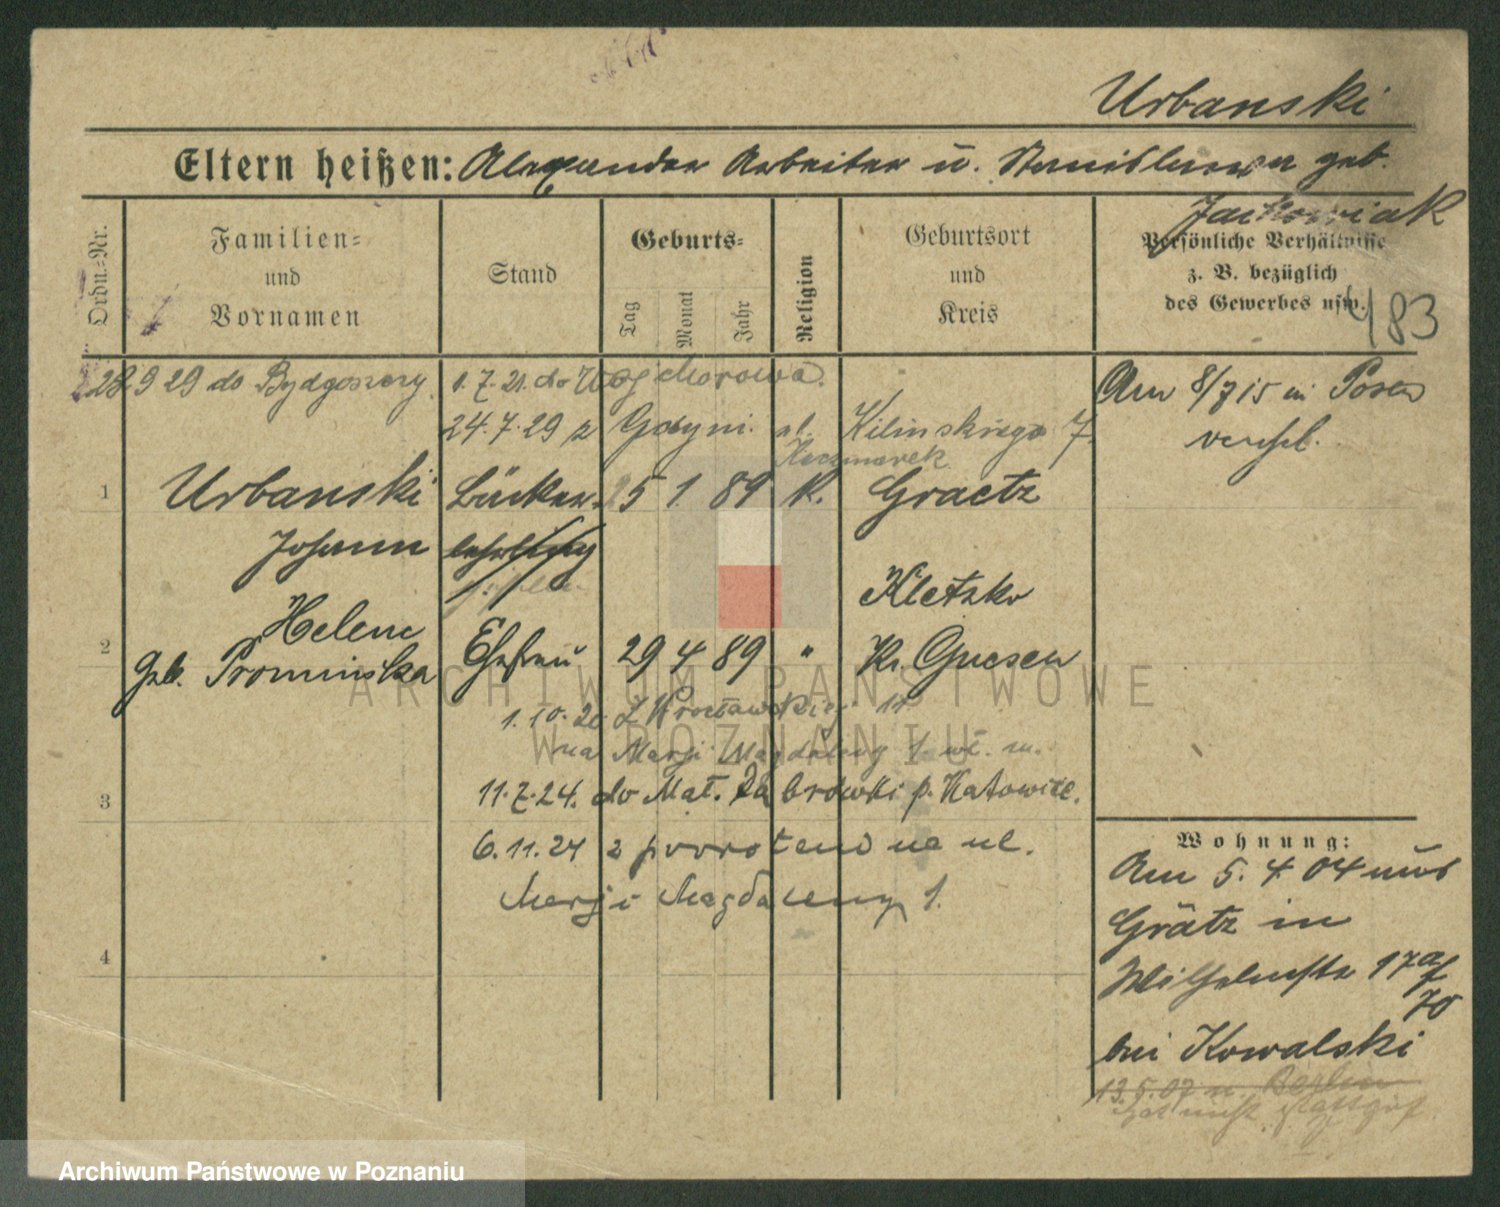 Urbanski
Eltern heißen: Alexander Arbeiter u. Stanislawa geb.
Jackowiak
Ordn.-Nr.
Familien- und Vornamen
Stand
Geburts-
Tag
Monat
Jahr
Religion
Geburtsort und Kreis
Persönliche Verhältnisse
z. B. bezüglich
des Gewerbes usw.
483
28 9 29 do Bydgoszczy 1.7.21 do
24.7.29 z Gdyni. ul. Kilinskiego 7.
Kaczmarek
Am 8/7 15 in Posen
verehel.
1 Urbanski Bäcker- 25 1. 89 K. Graetz
Johann lehrling
Helene Kletzko
2 geb. Prominska Ehefrau 29 4 89 " Kr. Gnesen
1.10.20 Z Wrocławskiej 11
na Marji Magdaleny 1 m.
3 11.7.24. do Mał. Dąbrówki p. Katowice.
6.11.24 z powrotem na ul.
Marji Magdaleny 1.
4
Wohnung:
Am 5. 4. 04 aus
Grätz in
Wilhelmstr 17
bei Kowalski
13.5.07 n. Berlin
hat nicht stattgef
ARCHIWUM PAŃSTWOWE
W POZNANIU
Archiwum Państwowe w Poznaniu